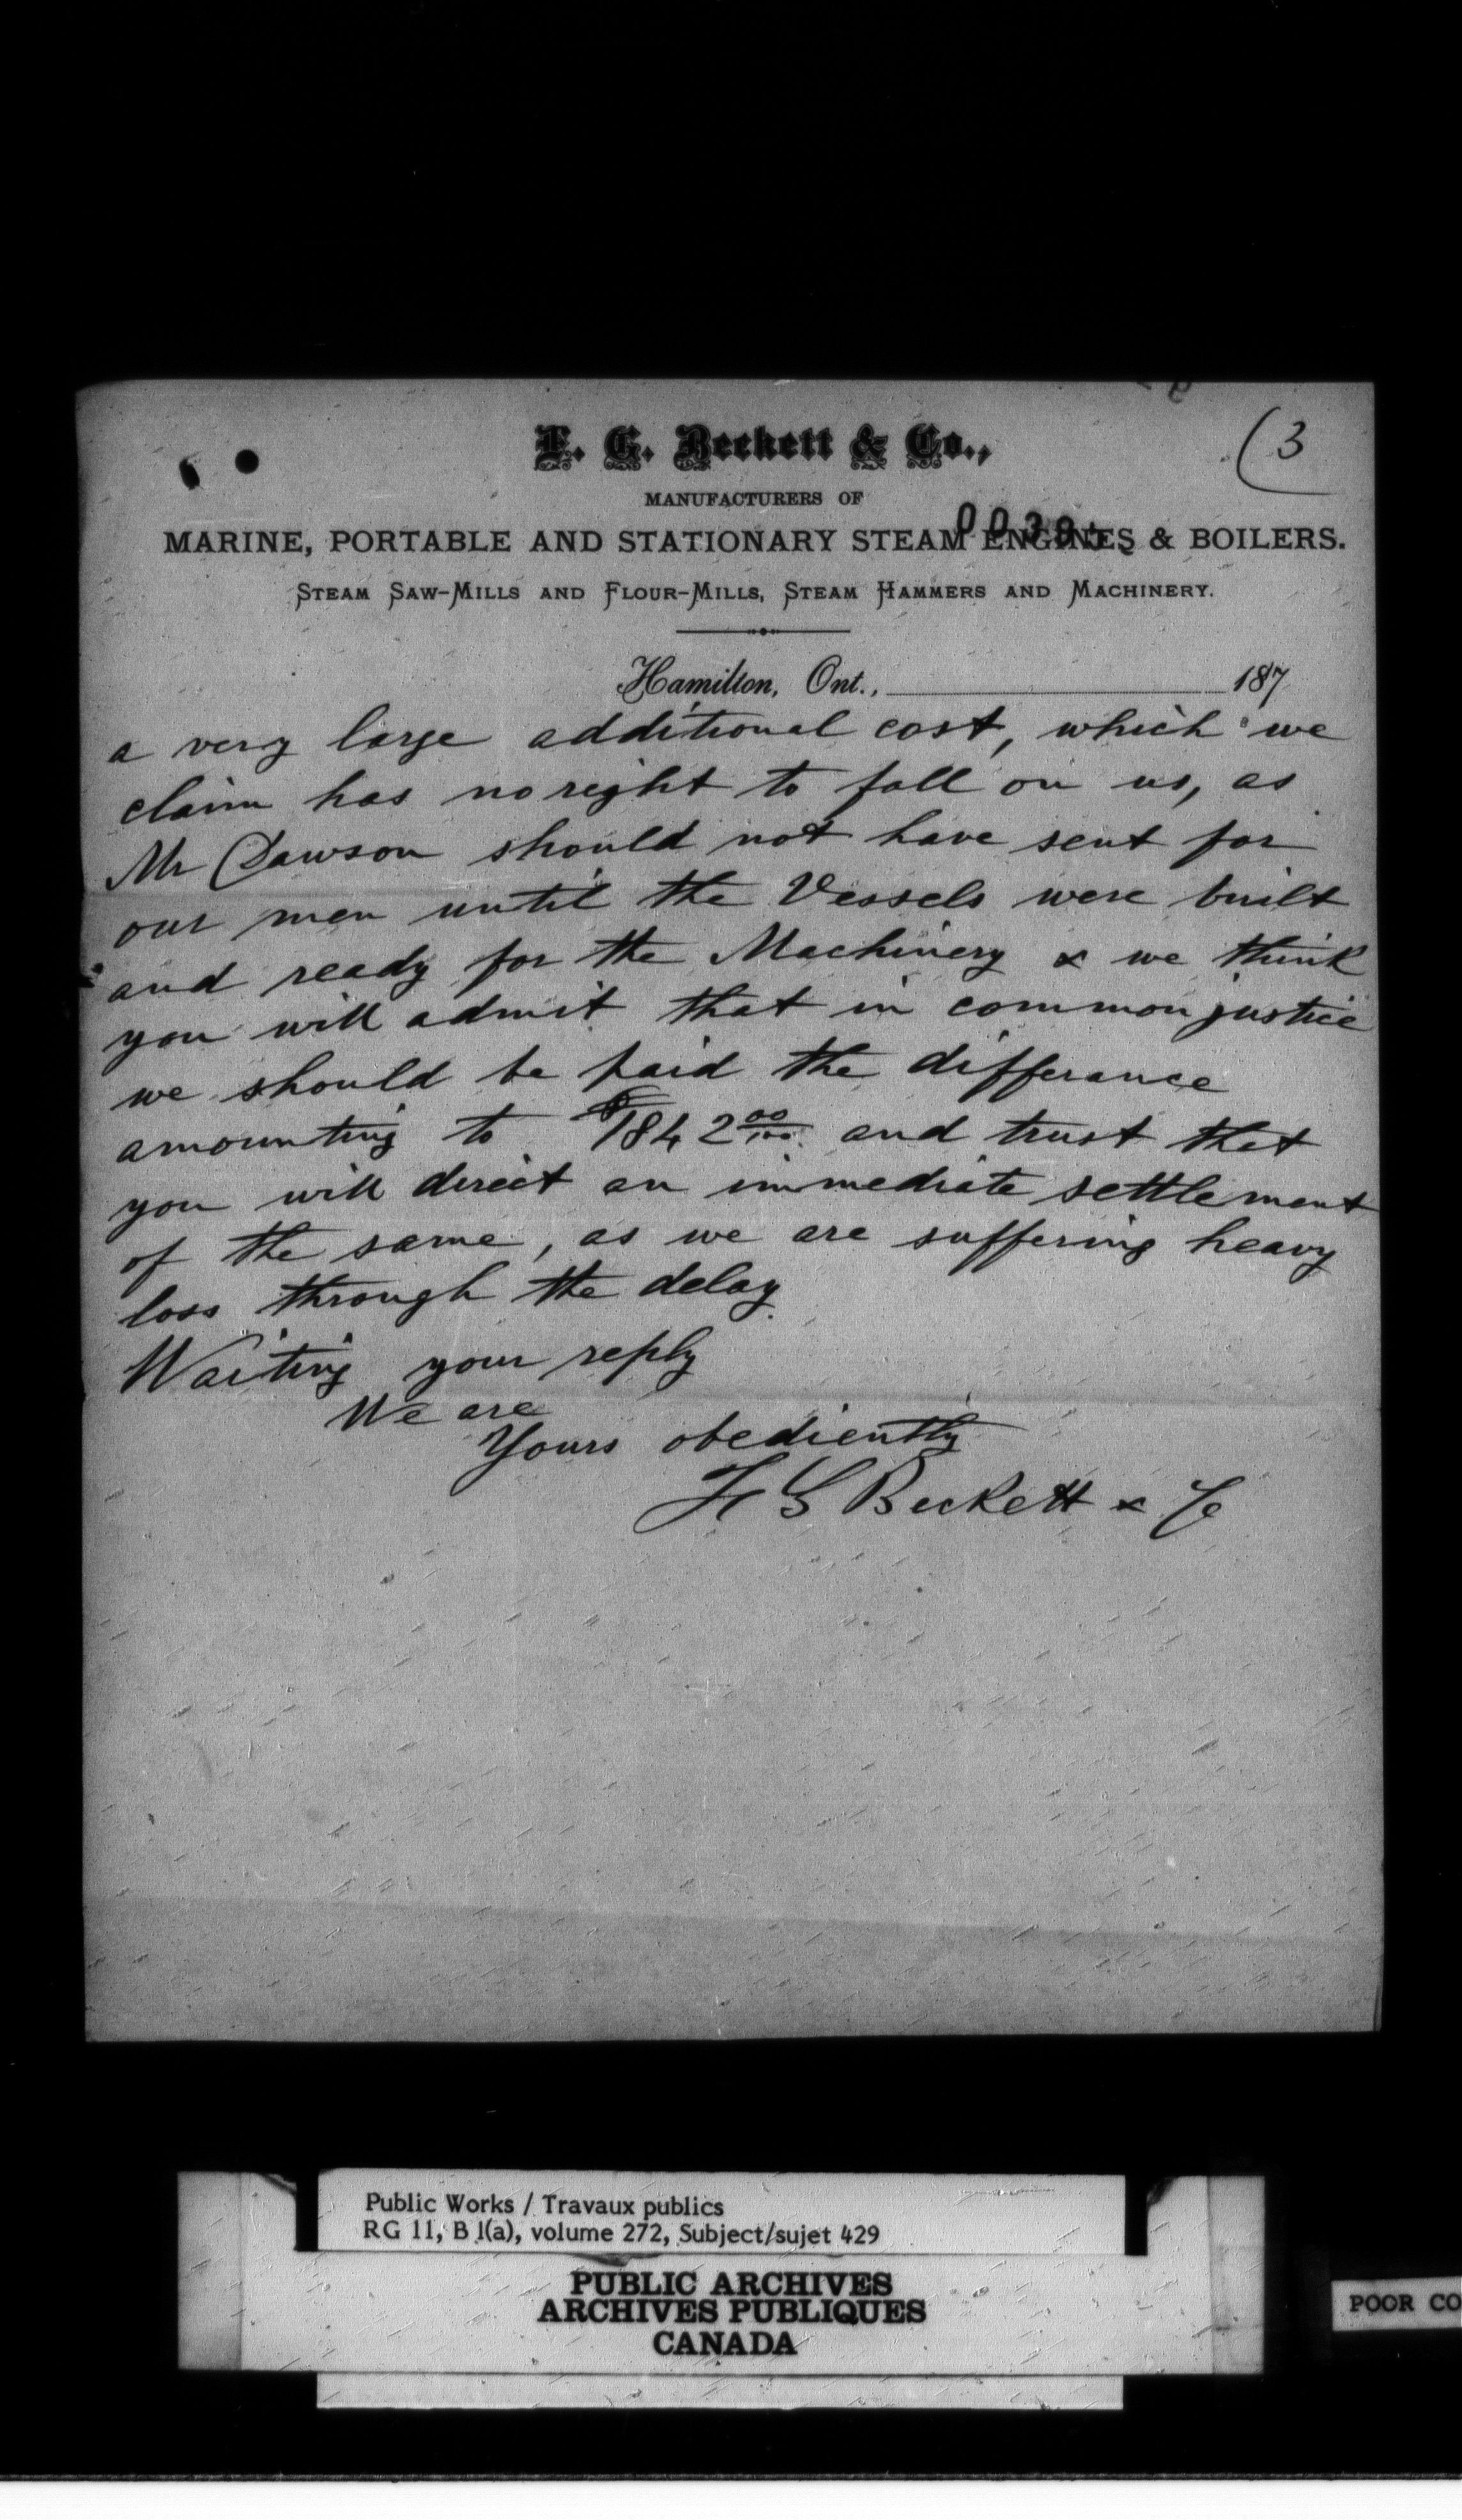 (3
F. G. Beckett & Co.,
MANUFACTURERS OF
MARINE, PORTABLE AND STATIONARY STEAM ENGINES & BOILERS.
STEAM SAW-MILLS AND FLOUR-MILLS, STEAM HAMMERS AND MACHINERY.
Hamilton, Ont., 187
a very large additional cost, which we
claim has no right to fall on us, as
Mr Dawson should not have sent for
our men until the Vessels were built
and ready for the Machinery & we think
you will admit that in common justice
we should be paid the differance
amounting to $1842 00/100 and trust that
you will direct an immediate settlement
of the same, as we are suffering heavy
loss through the delay.
Waiting your reply
We are
Yours obediently
F G Beckett & Co
Public Works / Travaux publics
RG 11, B 1(a), volume 272, Subject/sujet 429
PUBLIC ARCHIVES
ARCHIVES PUBLIQUES
CANADA
POOR CO